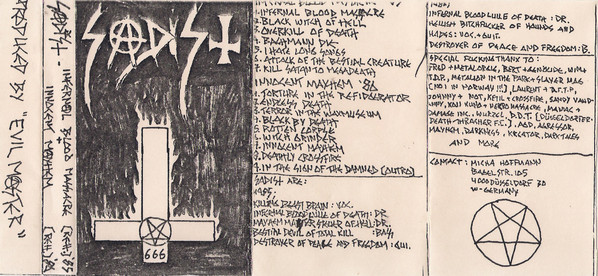 PRODUCED BY "EVIL MOSER"
SADIST - INFERNAL BLOOD MASSACRE (REH.) '85
INNOCENT MAYHEM (REH.) '86
SADIST
666
INFERNAL BLOOD MASSACRE
2. BLACK WITCH OF HELL
3. OVERKILL OF DEATH
4. BACHMANN DIE
5. I HATE LONG SONGS
6. ATTACK OF THE BESTIAL CREATURE
7. KILL SATAN TO MEGADEATH
INNOCENT MAYHEM '86
1. TORTURE IN THE REFRIGERATOR
2. ENDLESS DEATH
3. TERROR IN THE WAXMUSEUM
4. BLACK BY DEATH
5. ROTTEN CORPSE
6. WITCH GRINDER
7. INNOCENT MAYHEM
8. DEATHLY CROSSFIRE
9. IN THE SIGN OF THE DAMNED (OUTRO)
SADIST ARE:
1985:
KILLING BEAST BRAIN: VOC.
INFERNAL BLOOD LULLE OF DEATH: DR.
MAYHEM OF HELL: DR.
BESTIAL DEVIL OF TOTAL KILL: BASS
DESTROYER OF PEACE AND FREEDOM: GUI.
INFERNAL BLOOD LULLE OF DEATH: DR.
HELLISH BITCHFUCKER OF HOUNDS AND
HADES: VOC. + GUIT.
DESTROYER OF PEACE AND FREEDOM: B.
SPECIAL FUCKING THANX TO:
FRED + METALORGIE, BERT + GENOCIDE, WIM +
T.D.P., METALION IN THE PARK + SLAYER MAG
(NO 1 IN NORWAY!!!) LAURENT +
JOHNNY + NOT, KETIL + CROSSFIRE, SANDY
MANIAC +
DAMAGE INC., D.D.T. (DÜSSELDORFER-
DEATH-THRASHER F.C.), AGRESSOR,
MAYHEM, DARKNESS, KREATOR, DARK TALES
AND MORE
CONTACT: MICHA HOFFMANN
BAGELSTR. 105
4000 DÜSSELDORF 30
W-GERMANY